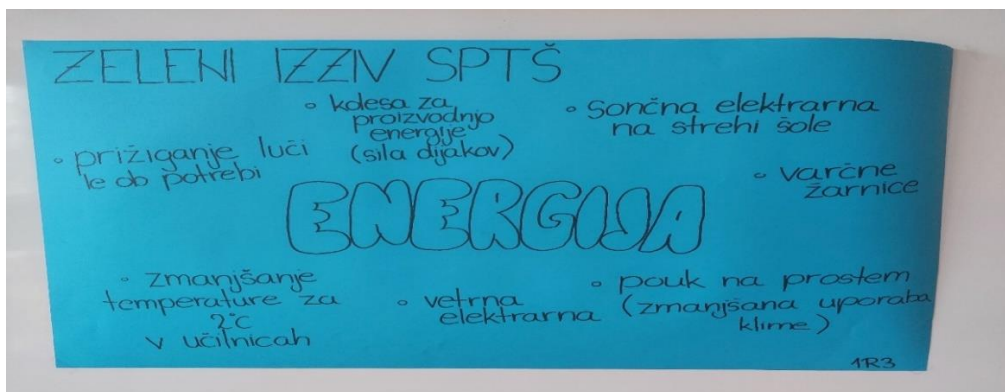 ZELENI IZZIV SPTŠ
• kolesa za
proizvodnjo
energije
(sila dijakov)
• sončna elektrarna
na strehi šole
• prižiganje luči
le ob potrebi
• varčne
žarnice
ENERGIJA
• zmanjšanje
temperature za
2°C
v učilnicah
• vetrna
elektrarna
• pouk na prostem
(zmanjšana uporaba
klime)
1R3